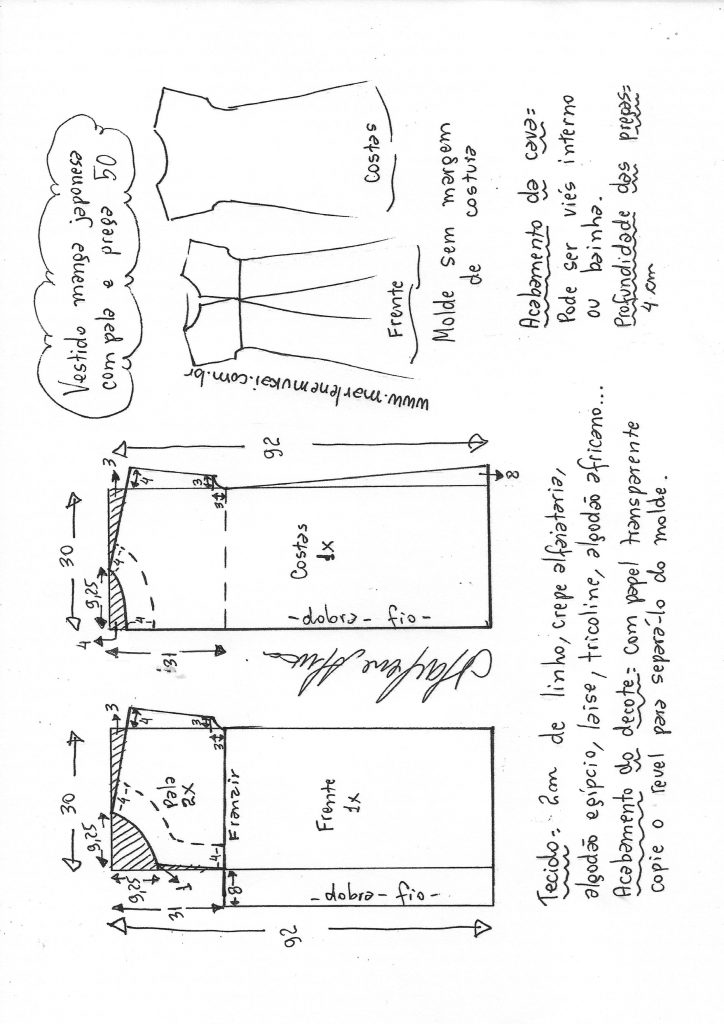 Vestido manga japonesa
com pala e prega 50
Costas
Frente
www.marlenemukai.com.br
Molde sem margem
de costura
Acabamento da cava=
Pode ser viés interno
ou bainha.
Profundidade das pregas=
4 cm
30
9,25
3
4
4
4
3
3
92
31
Costas
1x
-oif -erqop-
8
30
9,25
3
4
4
3
3
9,25
1
31
92
Pala
2x
4
Franzir
8
Frente
1x
-oif -erqop-
Tecido= 2cm de linho, crepe alfaiataria,
algodão egípcio, laise, tricoline, algodão africano...
Acabamento do decote= Com papel transparente
copie o revel para separá-lo do molde.